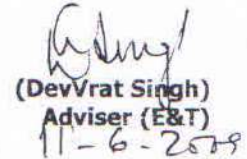 (DevVrat Singh)
Adviser (E&T)
11-6-2009